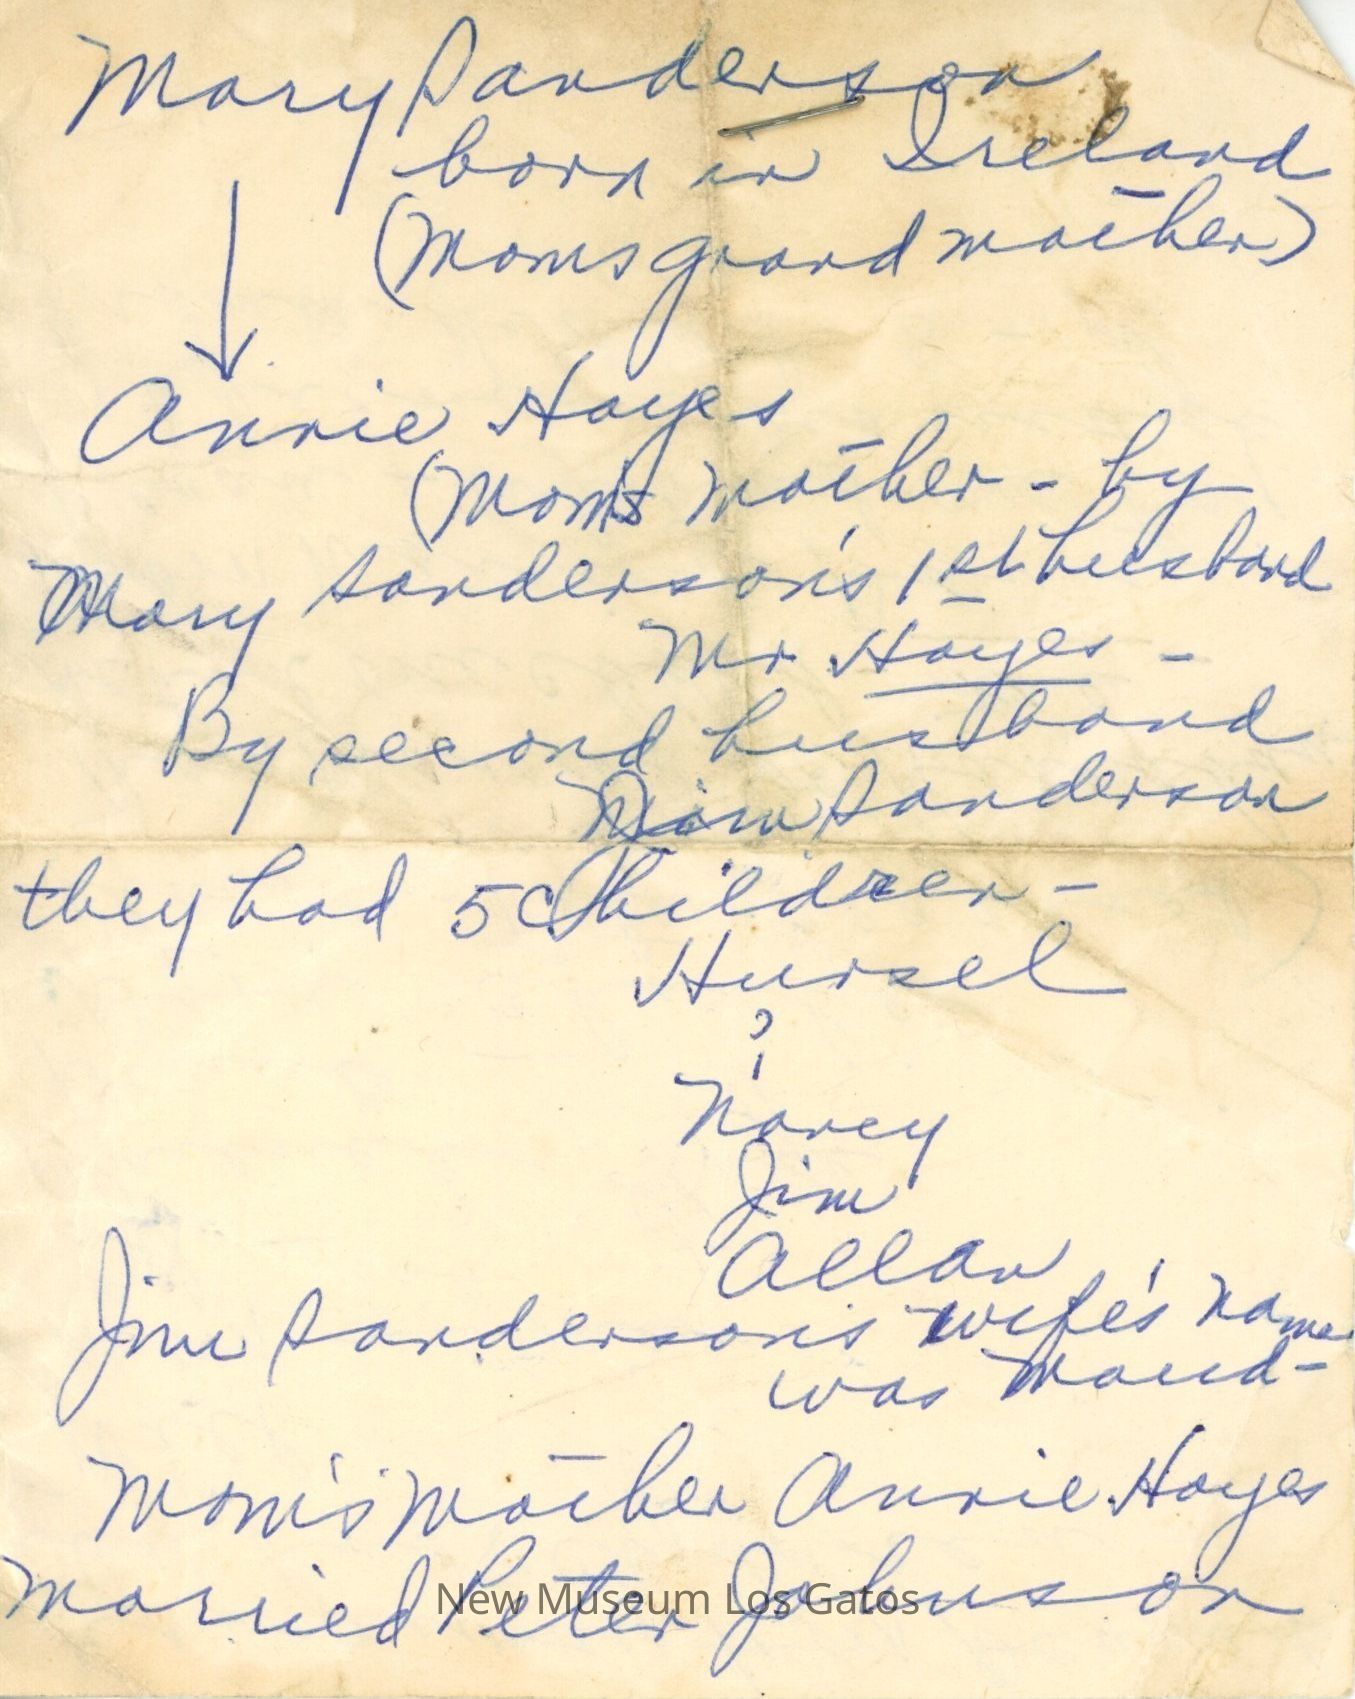 Mary Sanderson
born in Ireland
(Moms grandmother)
Annie Hayes
(Mom's mother - by
Mary Sanderson's 1st husband
Mr Hayes -
By second husband
Jim Sanderson
they had 5 Children -
Hursel
?
Nancy
Jim
Allan
Jim Sanderson's wife's name
was Maud -
Mom's Mother Annie Hayes
married Peter Johnson
New Museum Los Gatos